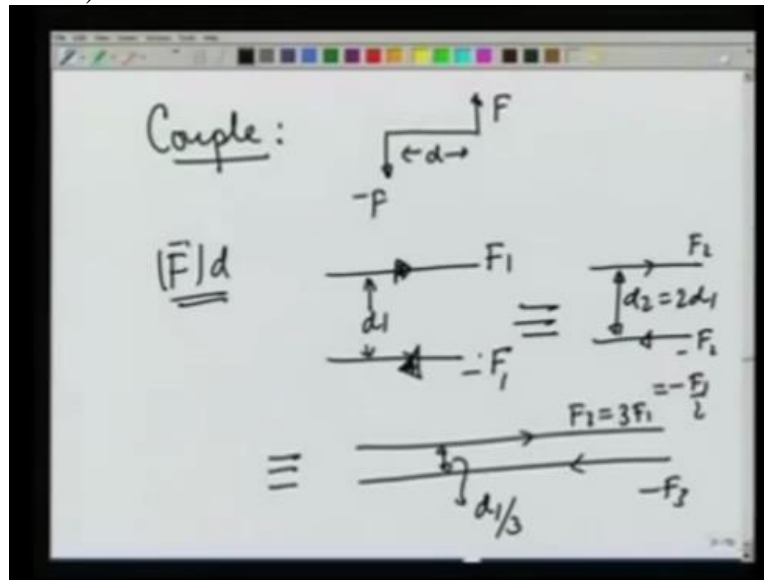 Couple :
F
←d→
-F
|F̄|d
F₁
d₁
-F₁
≡
F₂
d₂=2d₁
-F₂
=-F₁/2
≡
F₃=3F₁
-F₃
d₁/3